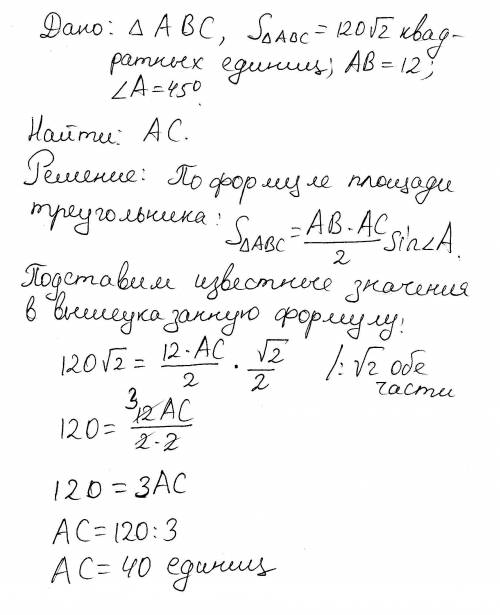 Дано: △ ABC, S△ABC = 120√2 квад-
ратных единиц; AB = 12;
∠A = 45°.
Найти: AC.
Решение: По формуле площади
треугольника: S△ABC = AB · AC / 2 sin∠A.
Подставим известные значения
в вышеуказанную формулу:
120√2 = 12 · AC / 2 · √2 / 2 /: √2 обе
части
120 = 3 12 AC / 2 · 2
120 = 3AC
AC = 120 : 3
AC = 40 единиц